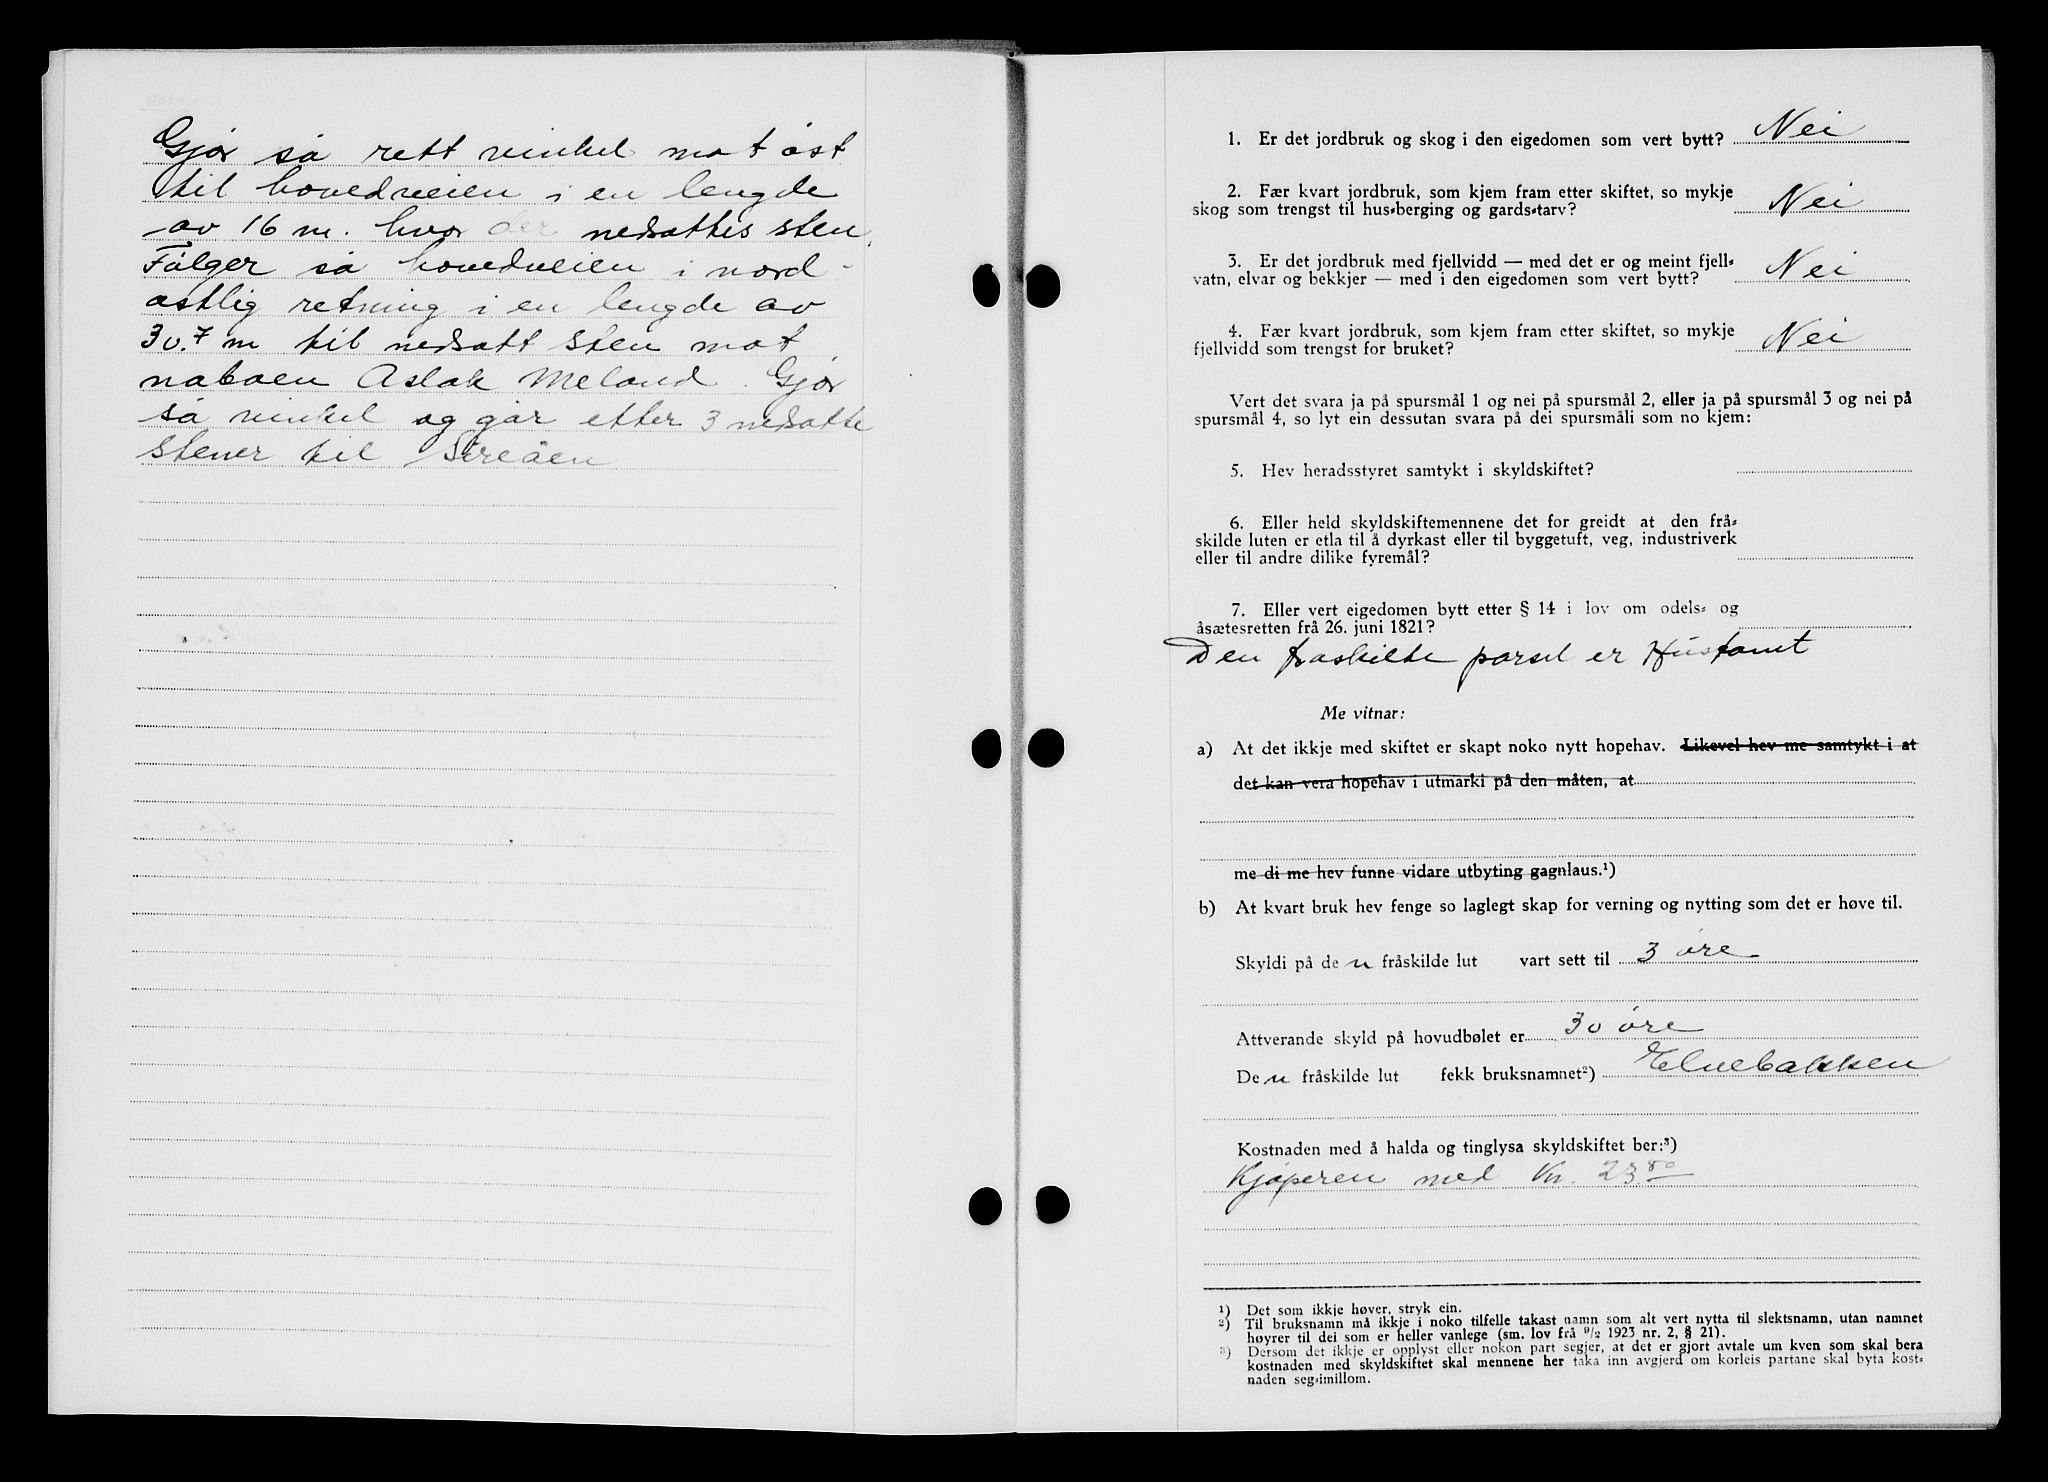 Gjør så rett vinkel mot øst
til hovedveien i en lengde
av 16 m. hvor der nedsattes sten.
Følger så hovedveien i nord-
østlig retning i en lengde av
30.7 m til nedsatt sten mot
naboen Aslak Meland. Gjør
så vinkel og går etter 3 nedsatte
stener til Sireåen
1. Er det jordbruk og skog i den eigedomen som vert bytt? Nei
2. Fær kvart jordbruk, som kjem fram etter skiftet, so mykje
skog som trengst til hus-berging og gards-tarv? Nei
3. Er det jordbruk med fjellvidd — med det er og meint fjell-
vatn, elvar og bekkjer — med i den eigedomen som vert bytt? Nei
4. Fær kvart jordbruk, som kjem fram etter skiftet, so mykje
fjellvidd som trengst for bruket? Nei
Vert det svara ja på spursmål 1 og nei på spursmål 2, eller ja på spursmål 3 og nei på
spursmål 4, so lyt ein dessutan svara på dei spursmåli som no kjem:
5. Hev heradsstyret samtykt i skyldskiftet?
6. Eller held skyldskiftemennene det for greidt at den frå-
skilde luten er etla til å dyrkast eller til byggetuft, veg, industriverk
eller til andre dilike fyremål?
7. Eller vert eigedomen bytt etter § 14 i lov om odels- og
åsætesretten frå 26. juni 1821?
Den fraskilte parsel er Hustomt
Me vitnar:
a) At det ikkje med skiftet er skapt noko nytt hopehav. Likevel hev me samtykt i at
det kan vera hopehav i utmarki på den måten, at
me di me hev funne vidare utbyting gagnlaus.¹)
b) At kvart bruk hev fenge so laglegt skap for verning og nytting som det er høve til.
Skyldi på den fråskilde lut vart sett til 3 øre
Attverande skyld på hovudbølet er 30 øre
Den fråskilde lut fekk bruksnamnet²) Elvebakken
Kostnaden med å halda og tinglysa skyldskiftet ber:³)
Kjøperen med Kr. 23.80
¹) Det som ikkje høver, stryk ein.
²) Til bruksnamn må ikkje i noko tilfelle takast namn som alt vert nytta til slektsnamn, utan namnet
høyrer til dei som er heller vanlege (sm. lov frå 9/2 1923 nr. 2, § 21).
³) Dersom det ikkje er opplyst eller nokon part segjer, at det er gjort avtale um kven som skal bera
kostnaden med skyldskiftet skal mennene her taka inn avgjerd om korleis partane skal byta kost-
naden seg-imillom.